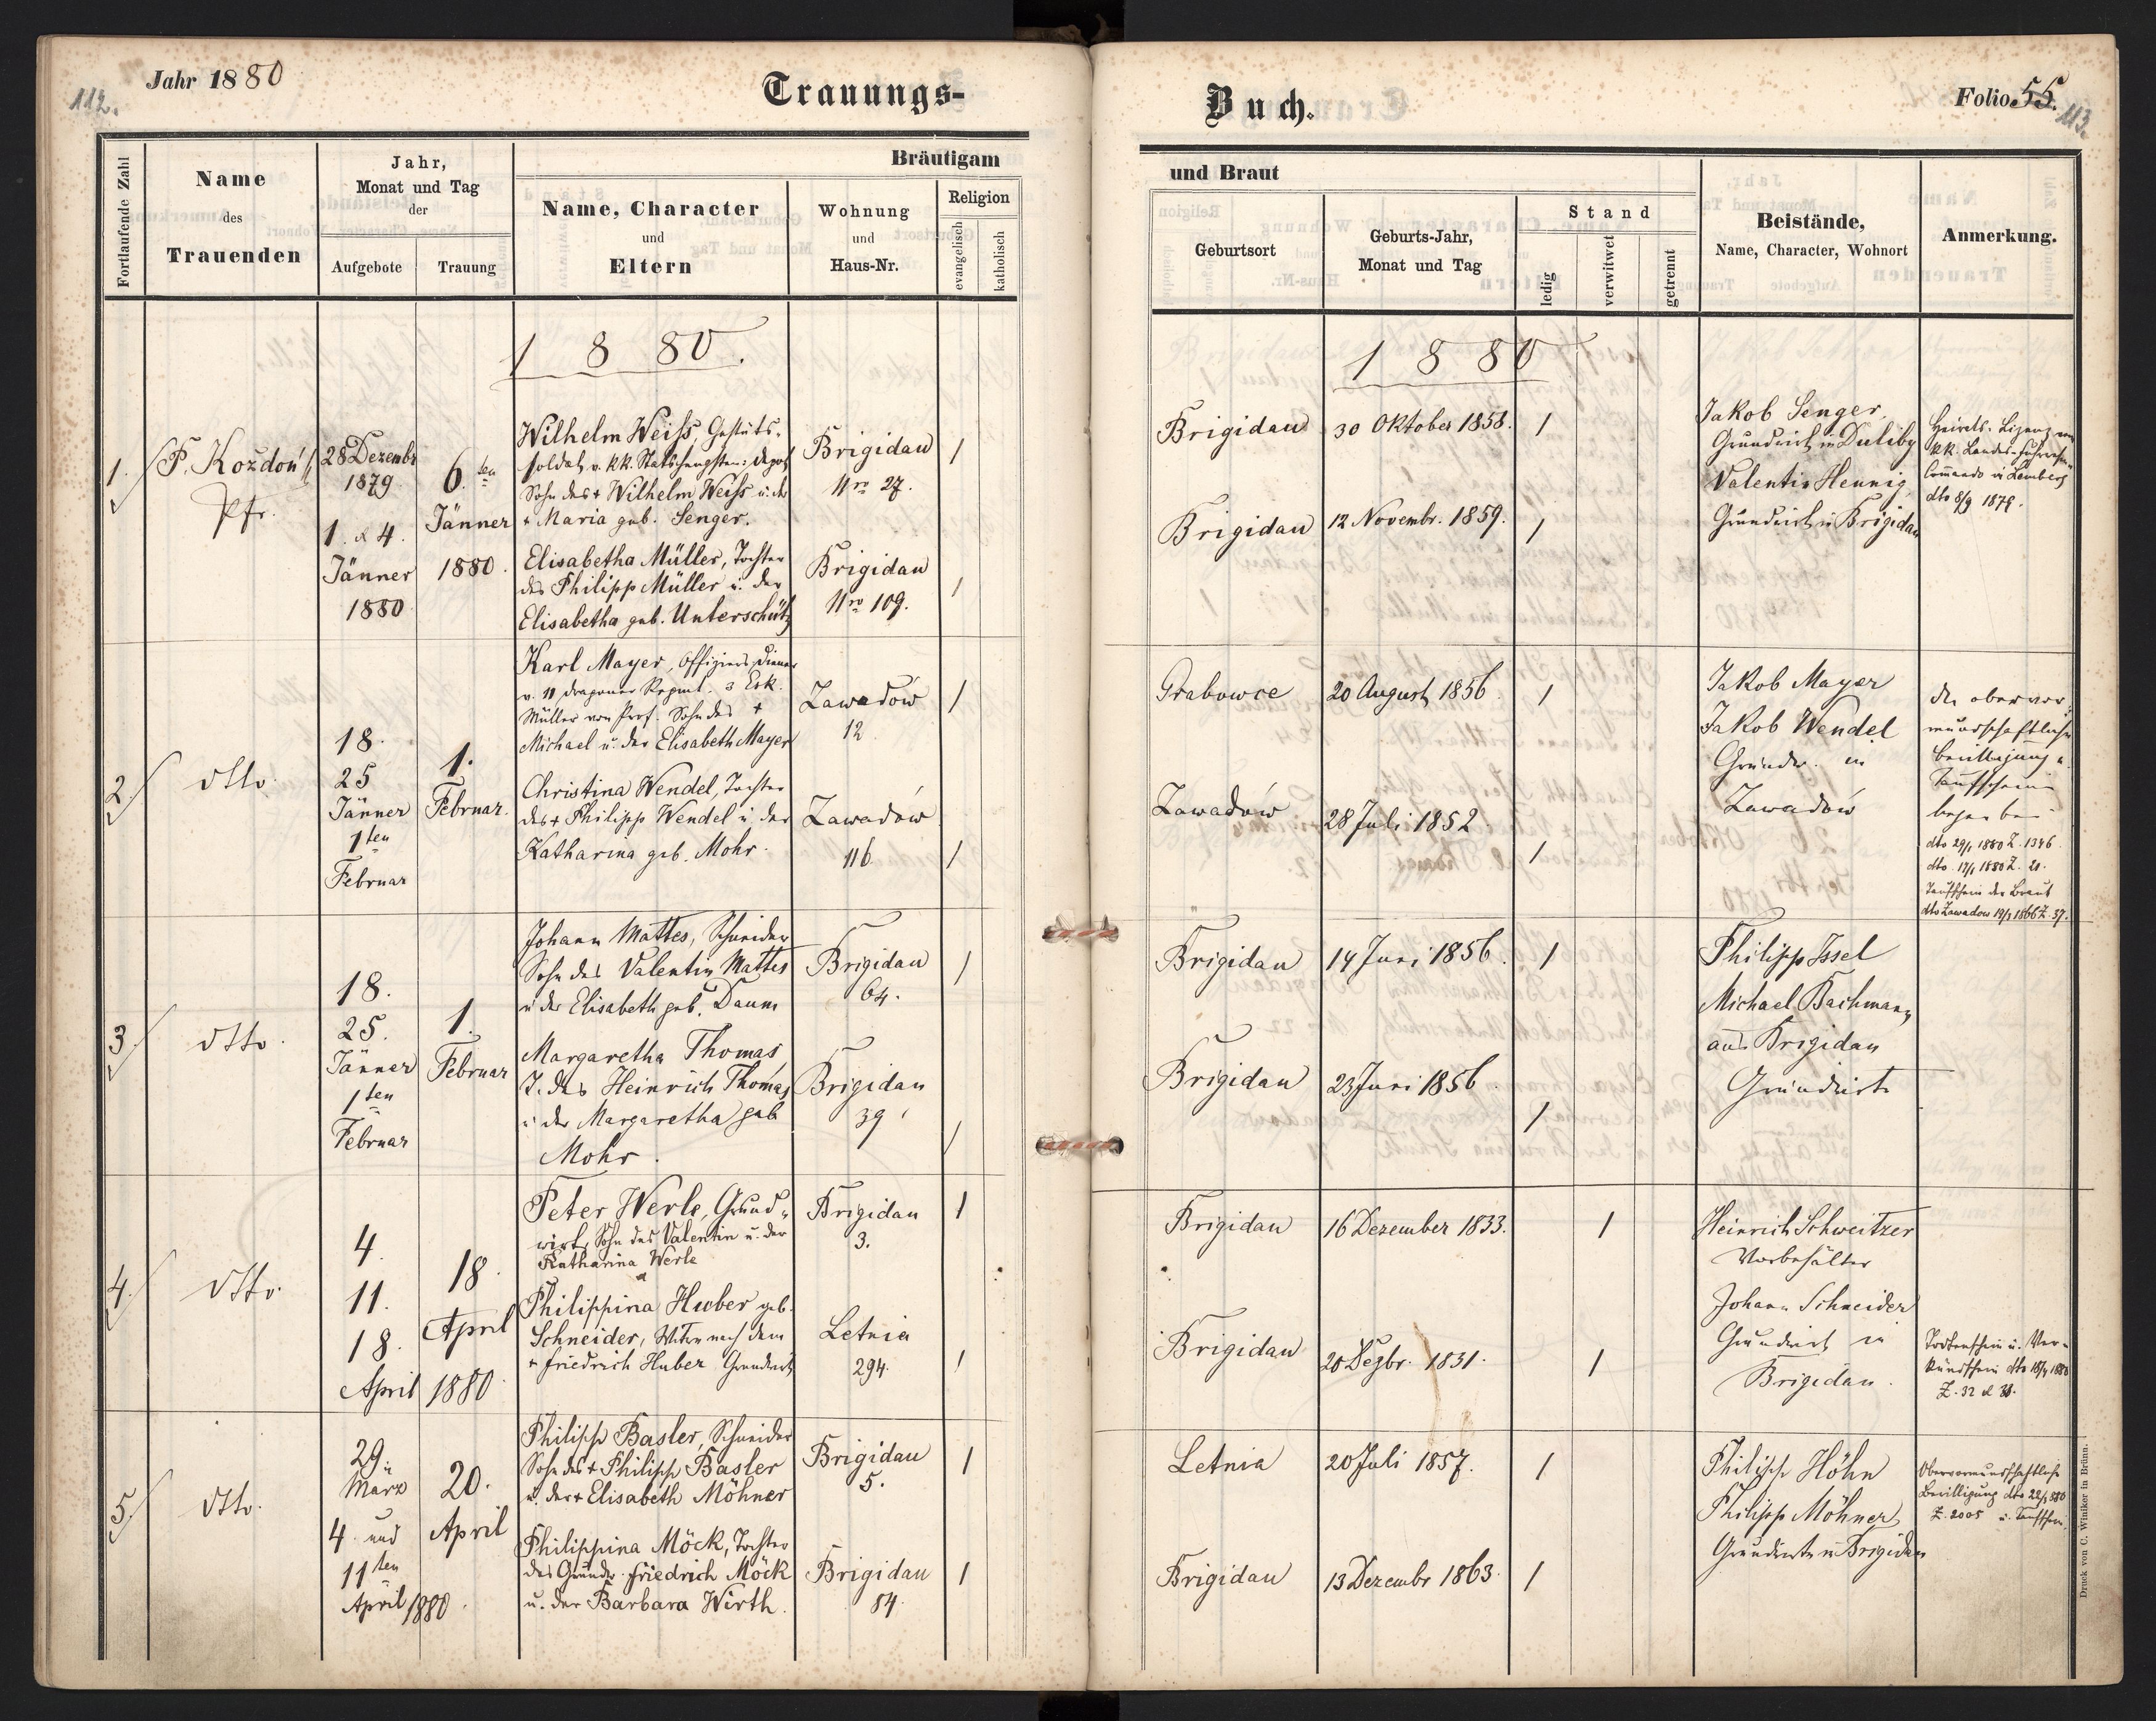 112.
Jahr 1880
Trauungs-
Fortlaufende Zahl
Name
des
Trauenden
Jahr,
Monat und Tag
der
Aufgebote
Trauung
Bräutigam
Name, Character
und
Eltern
Wohnung
und
Haus-Nr.
Religion
evangelisch
katholisch
1 8 80.
1.
F. Koždoń
Pfr.
28 Dezembr
1879
1. & 4.
Jänner
1880
6.ten
Jänner
1880.
Wilhelm Weiss, Gestüts-
soldat v. kk. Statshengsten-depot
Sohn des + Wilhelm Weiss u. der
+ Maria geb. Senger.
Brigidau
Nro 27.
1
Elisabetha Müller, Tochter
des Philipp Müller u. der
Elisabetha geb. Unterschütz
Brigidau
Nro 109.
1
2
dtto
18.
25
Jänner
1ten
Februar
1.
Februar.
Karl Mayer, Offiziersdiener
v. 11 Dragoner Regmt. 3 Esk.
Müller von Prof. Sohn des +
Michael u. der Elisabeth Mayer
Zawadów
12
1
Christina Wendel, Tochter
des + Philipp Wendel u. der
Katharina geb. Mohr.
Zawadów
116
1
3
dtto.
18.
25.
Jänner
1ten
Februar
1.
Februar
Johann Mattes, Schneider
Sohn des Valentin Mattes
u der Elisabeth geb. Daum
Brigidau
64.
1
Margaretha Thomas,
T. des Heinrich Thomas,
u der Margaretha geb
Mohr.
Brigidau
39
1
4.
dtto.
4.
11.
18.
April
18.
April
1880.
Peter Werle, Grund-
wirt, Sohn des Valentin u. der
Katharina Werle
Brigidau
3.
1
Philippina Huber geb.
Schneider, Witwe nach dem
+ Friedrich Huber Grundwirt
Letnia
294.
1
5.
dtto.
29.
März
4. und
11ten
April 1880.
20.
April
Philipp Basler, Schneider
Sohn des + Philipp Basler
u. der + Elisabeth Möhner
Brigidau
5.
1
Philippina Möck, Tochter
des Grundw. Friedrich Möck
u. der Barbara Wirth.
Brigidau
84.
1
Buch.
Folio 55.
113.
und Braut
Geburtsort
Geburts-Jahr,
Monat und Tag
Stand
ledig
verwitwet
getrennt
Beistände,
Name, Character, Wohnort
Anmerkung.
1 8 80
Brigidau
30 Oktober 1858.
1
Brigidau
12 Novembr. 1859.
1
Jakob Senger
Grundwirt in Duliby
Valentin Hennig
Grundwirt in Brigidau
Heirats-Lizenz vom
kk. Landes-Fuhrwesen
Commando in Lemberg
dto 8/9 1879.
Grabowce
20 August 1856.
1
Zawadów
28 Juli 1852
1
Jakob Mayer
Jakob Wendel
Grundw. in
Zawadów
die obervor-
mundschaftliche
Bewilligung u.
Taufschein
dto 29/1 1880 Z. 1346.
dto. 17/1 1880 Z. 21.
Taufschein der Braut
dto Zawadow 19/1 1866 Z. 37.
Brigidau
14 Juni 1856.
1
Brigidau
23 Juni 1856.
1
Philipp Issel
Michael Bachmann
aus Brigidau
Grundwirte
Brigidau
16 Dezember 1833.
1
Brigidau
20 Dezbr. 1831.
1
Heinrich Schweitzer
Vorbehälter
Johann Schneider
Grundwirt in
Brigidau.
Todtenschein u. Ver-
kündschein dto 18/4 1880
Z. 32 & 38.
Letnia
20 Juli 1857.
1
Brigidau
13 Dezembr 1863.
1
Philipp Höhn
Philipp Möhner,
Grundwirte in Brigidau
Obervormundschaftliche
Bewilligung dto 22/3 880
Z. 2005 u. Taufschein.
Druck von C. Winiker in Brünn.